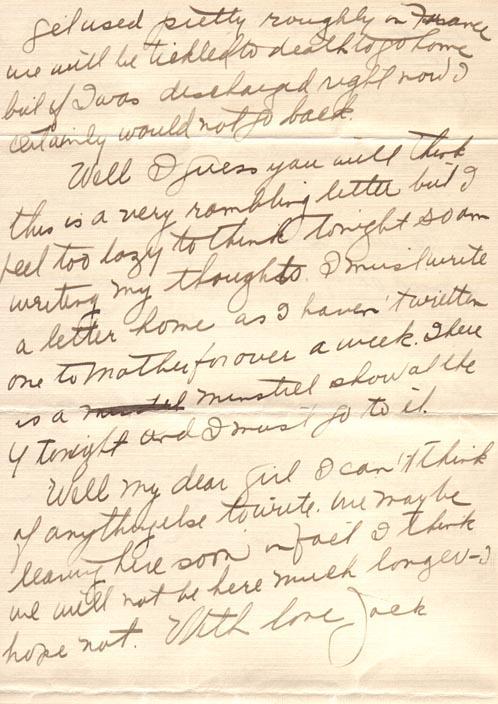 get used pretty roughly in France
we will be tickled to death to go home
but if I was discharged right now I
certainly would not go back.
Well I guess you will think
this is a very rambling letter but I
feel too lazy to think tonight so am
writing my thoughts. I must write
a letter home as I haven't written
one to Mother for over a week. There
is a minstrel show at the
Y tonight and I must go to it.
Well my dear girl I can't think
of anything else to write. We may be
leaving here soon in fact I think
we will not be here much longer - I
hope not. With love Jack